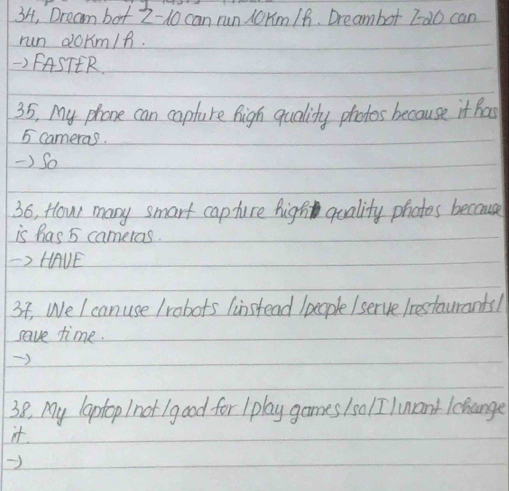 34, Dream bot Z-10 can run 10Km/h. Dreambot Z-20 can
run 20Km/h.
-> FASTER.
35, My phone can capture high quality photos because it has
5 cameras.
-> So
36, How many smart capture high quality photos because
is has 5 cameras.
-> HAVE
37, We / can use / robots / instead / people / serve / restaurants /
save time.
->
38, My laptop / not / good for / play games / so / I / want / change
it.
->